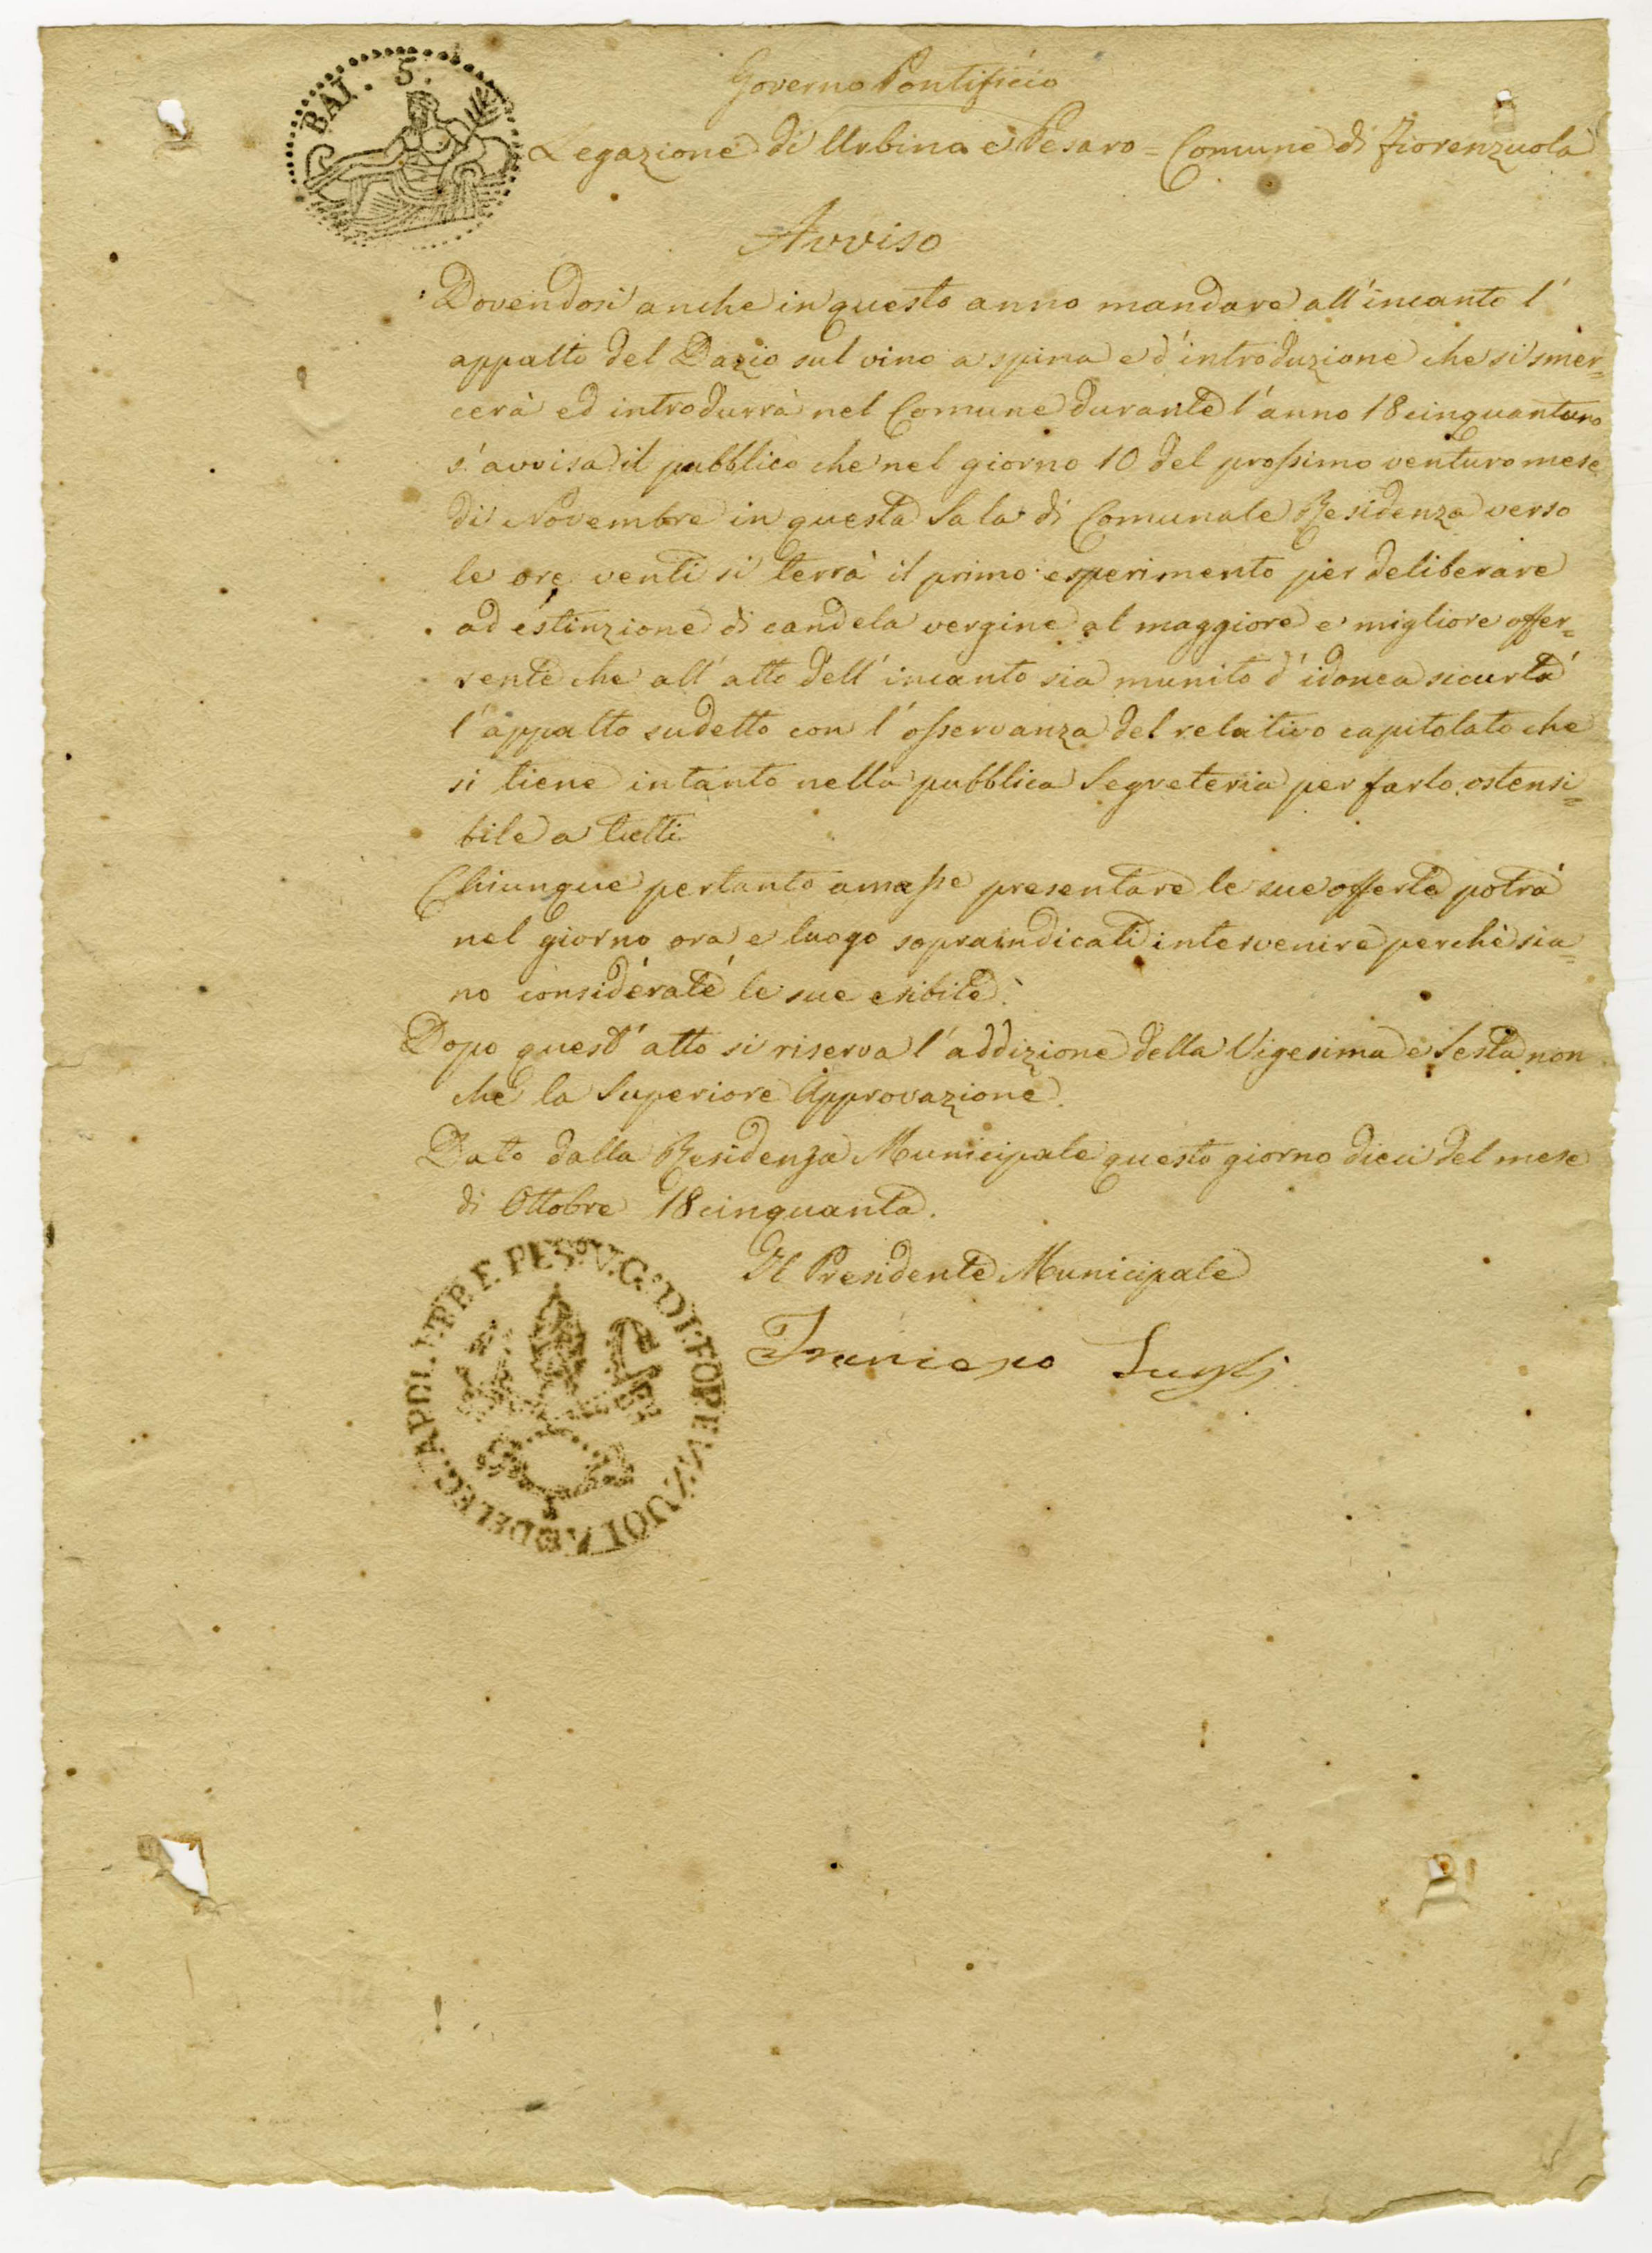 BAI. 5.
Governo Pontificio
Legazione di Urbino e Pesaro = Comune di Fiorenzuola
Avviso
Dovendosi anche in questo anno mandare all'incanto l'
appalto del Dazio sul vino a spina e d'introduzione che si smer=
cerà ed introdurrà nel Comune durante l'anno 18cinquantuno
s'avvisa il pubblico che nel giorno 10 del prossimo venturo mese
di Novembre in questa Sala di Comunale Residenza verso
le ore venti si terrà il primo esperimento per deliberare
ad estinzione di candela vergine al maggiore e migliore offer=
rente che all'atto dell'incanto sia munito d'idonea sicurtà
l'appalto sudetto con l'osservanza del relativo capitolato che
si tiene intanto nella pubblica Segreteria per farlo ostensi=
bile a tutti
Chiunque pertanto amasse presentare le sue offerte potrà
nel giorno ora e luogo sopraindicati intervenire perchè sia=
no considerate le sue esibite.
Dopo quest'atto si riserva l'addizione della Vigesima e Sesta non
chè la Superiore Approvazione.
Dato dalla Residenza Municipale questo giorno dieci del mese
di Ottobre 18cinquanta.
Il Presidente Municipale
Francesco
DELEG. APOL. URB. E PES. V.G. DI FIORENZUOLA